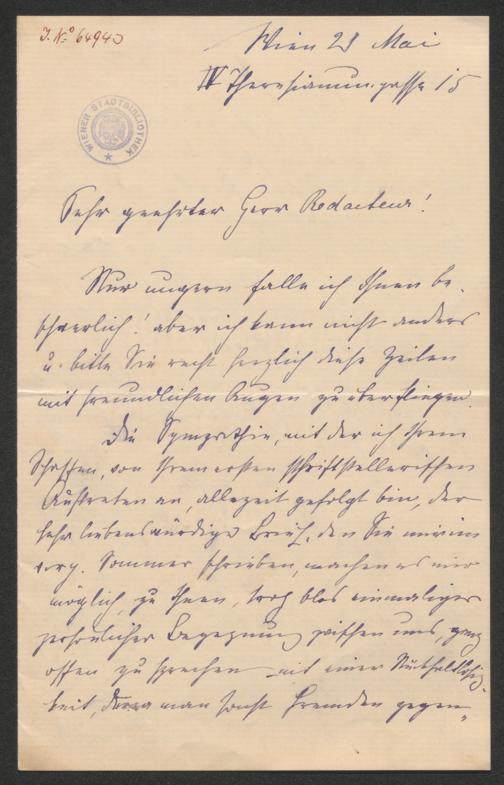 J. No 64940
Wien 23 Mai
IV Theresianumgasse 15
WIENER STADTBIBLIOTHEK
Sehr geehrter Herr Redacteur!
Nur ungern falle ich Ihnen be-
schwerlich! aber ich kann nicht anders
u. bitte Sie recht herzlich diese Zeilen
mit freundlichen Augen zu überfliegen.
Die Sympathie, mit der ich Ihrem
Schaffen, von Ihrem ersten schriftstellerischen
Auftreten an, allezeit gefolgt bin, der
sehr liebenswürdige Brief, den Sie mir im
vorg. Sommer schrieben, machen es mir
möglich, zu Ihnen, trotz blos einmaliger
persönlicher Begegnung zwischen uns, ganz
offen zu sprechen mit einer Rückhaltlosig-
keit, man sonst Fremden gegen-